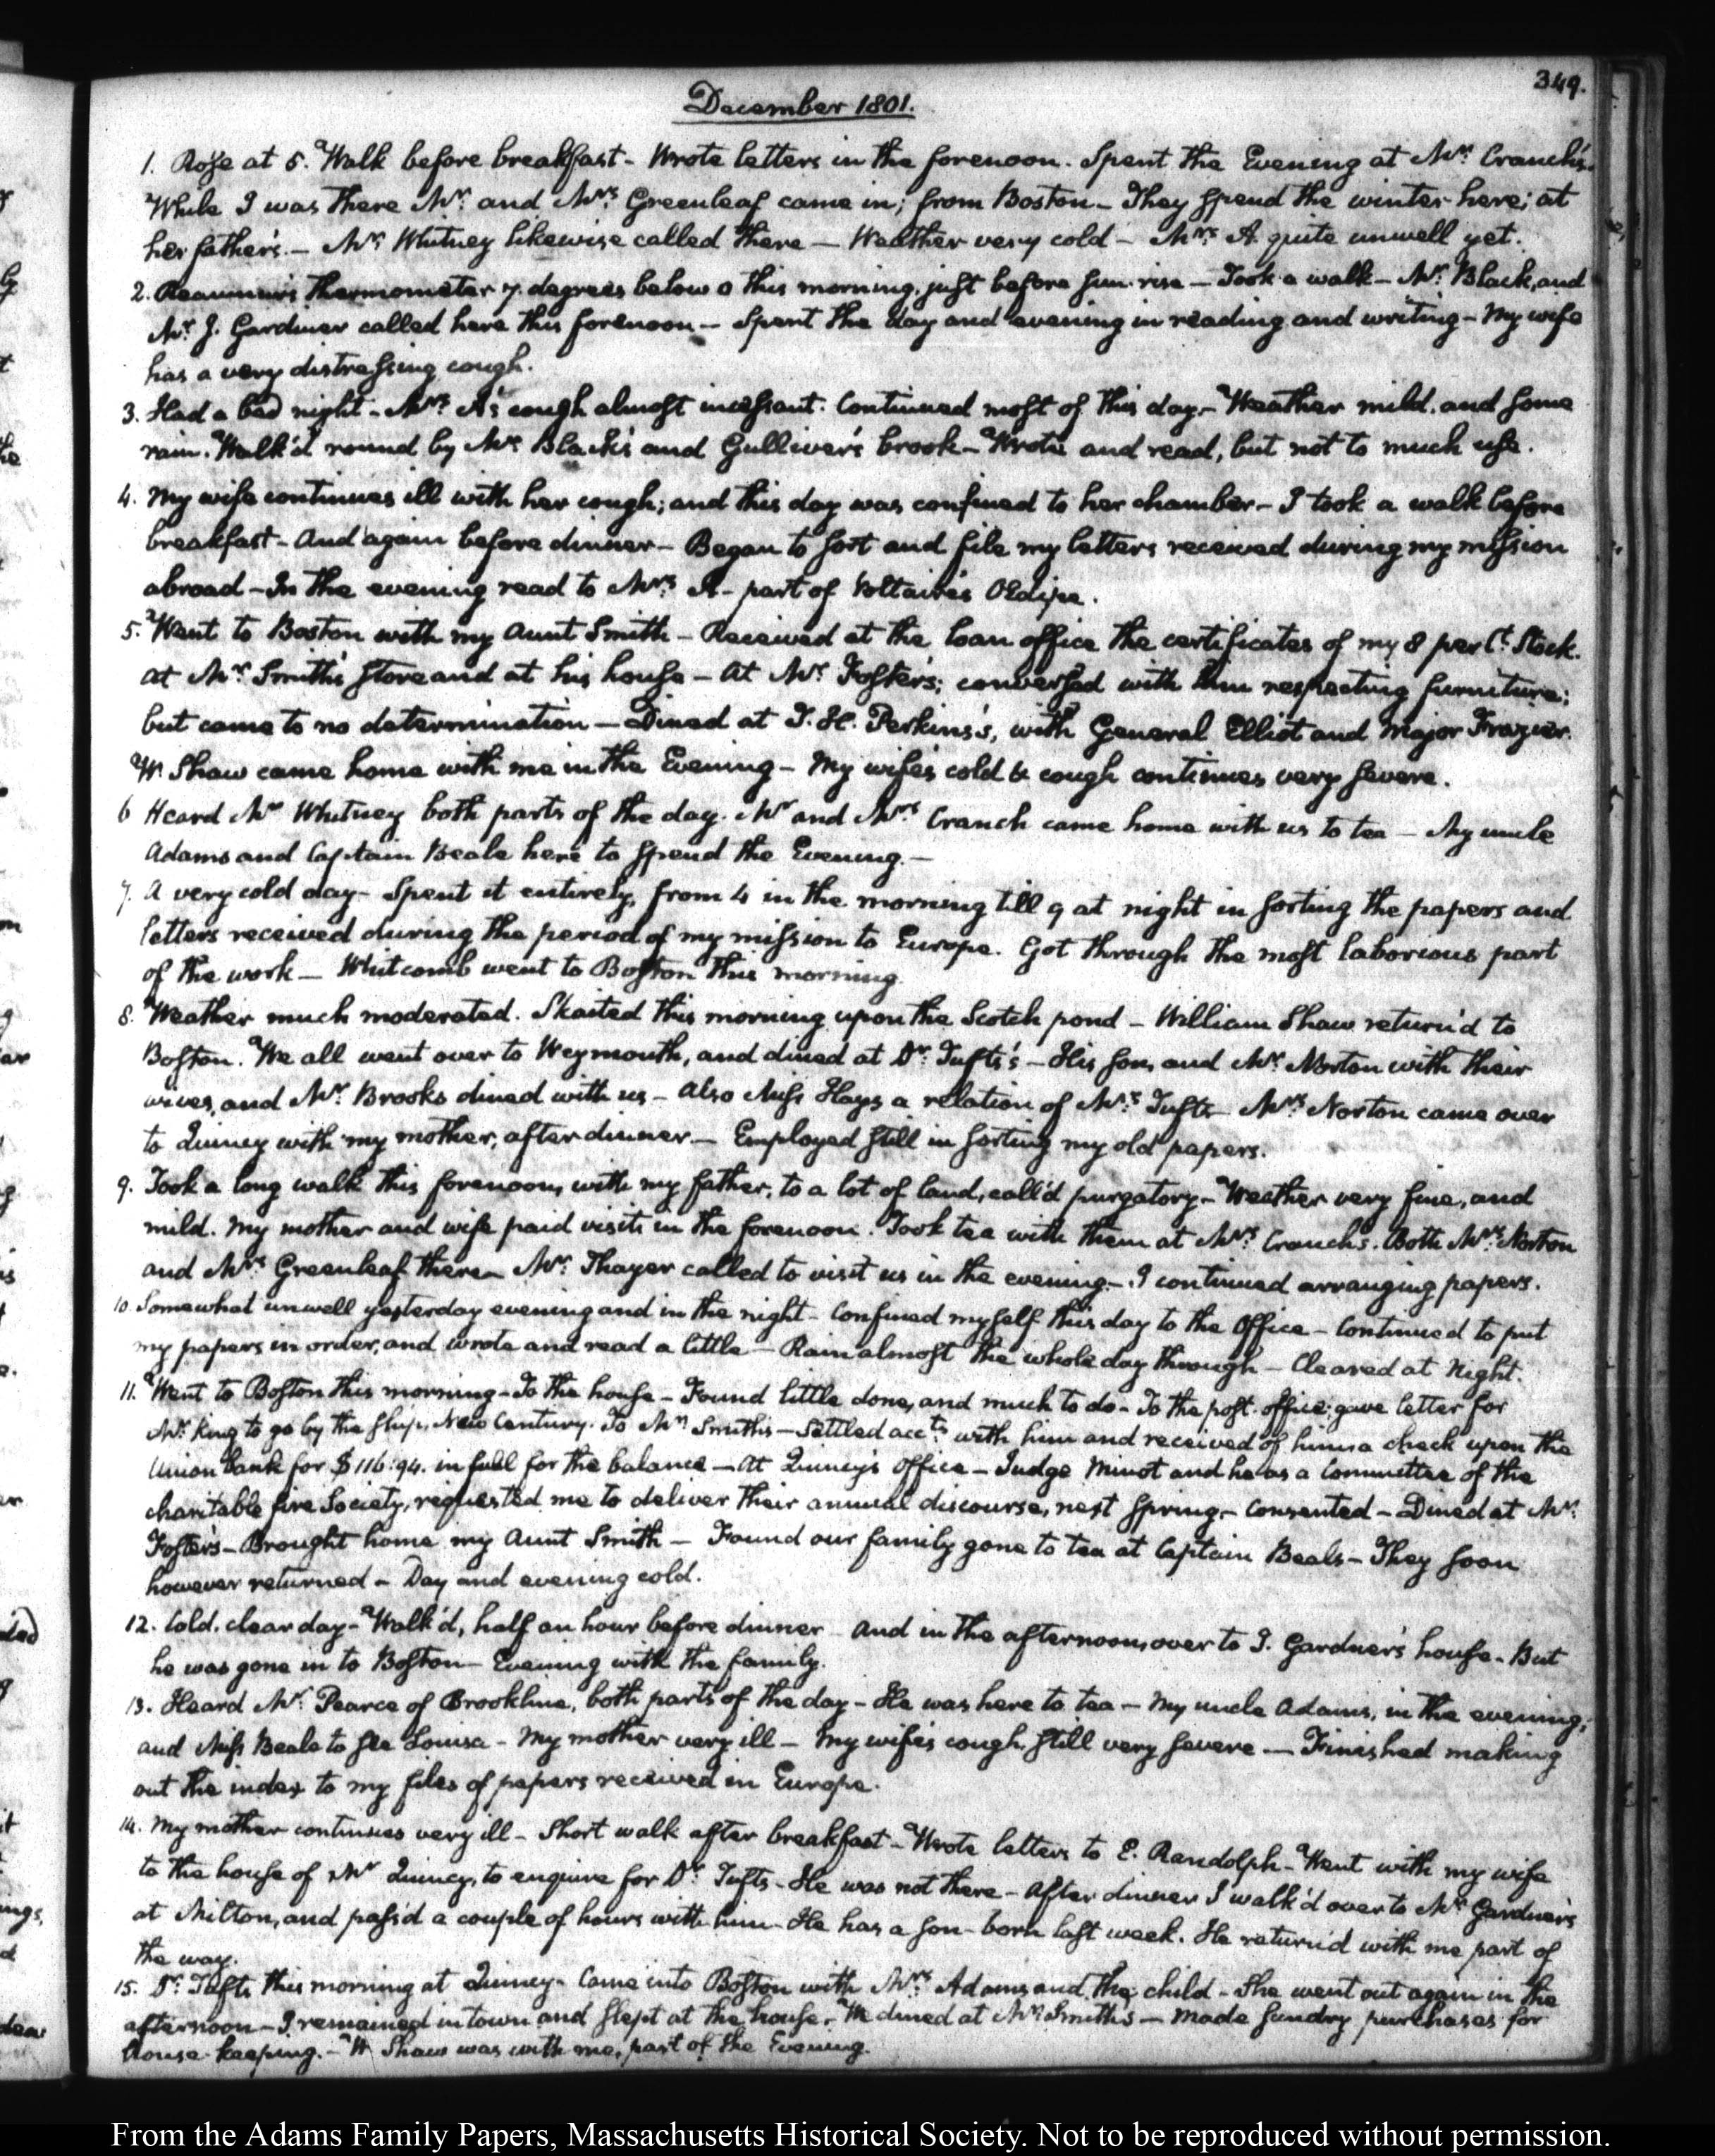 349.
December 1801.
1. Rose at 5. Walk before breakfast - Wrote letters in the forenoon. Spent the Evening at Mrs. Cranch's.
While I was there Mr. and Mrs. Greenleaf came in; from Boston - They spend the winter here; at
her father's. - Mrs. Whitney likewise called there - Weather very cold - Mrs. A. quite unwell yet.
2. Reaumur's thermometer 7. degrees below 0 this morning, just before sun-rise - Took a walk - Mr. Black, and
Mr. J. Gardiner called here this forenoon - Spent the day and evening in reading and writing - My wife
has a very distressing cough.
3. Had a bad night - Mrs. A's cough almost incessant. Continued most of this day. - Weather mild, and some
rain. Walk'd round by Mr. Black's and Gulliver's brook - Wrote and read, but not to much use.
4. My wife continues ill with her cough; and this day was confined to her chamber - I took a walk before
breakfast - And again before dinner - Began to sort and file my letters received during my mission
abroad - In the evening read to Mrs. A - part of Voltaire's OEdipe.
5. Went to Boston with my Aunt Smith - Received at the loan office the certificates of my 8 per Ct. Stock.
At Mr. Smith's store and at his house - At Mr. Foster's; conversed with him respecting furniture;
but came to no determination - Dined at T. H. Perkins's, with General Elliot and Major Frazier.
W. Shaw came home with me in the Evening - My wife's cold & cough continues very severe.
6 Heard Mr Whitney both parts of the day. Mr and Mrs. Cranch came home with us to tea - My uncle
Adams and Captain Beale here to spend the Evening. -
7. A very cold day - Spent it entirely, from 4 in the morning till 9 at night in sorting the papers and
letters received during the period of my mission to Europe. Got through the most laborious part
of the work - Whitcomb went to Boston this morning.
8. Weather much moderated. Skaited this morning upon the Scotch pond - William Shaw return'd to
Boston. We all went over to Weymouth, and dined at Dr. Tufts's - His son, and Mr. Norton with their
wives, and Mr. Brooks dined with us - Also Miss Hays a relation of Mrs. Tufts - Mrs. Norton came over
to Quincy with my mother, after dinner. - Employed still in sorting my old papers.
9. Took a long walk this forenoon, with my father, to a lot of land, call'd purgatory. - Weather very fine, and
mild. My mother and wife paid visits in the forenoon. Took tea with them at Mrs. Cranch's. Both Mrs. Norton
and Mrs. Greenleaf there - Mr. Thayer called to visit us in the evening. - I continued arranging papers.
10. Somewhat unwell yesterday evening and in the night - Confined myself this day to the Office - Continued to put
my papers in order, and wrote and read a little - Rain almost the whole day through - Cleared at Night.
11. Went to Boston this morning - To the house - Found little done, and much to do - To the post-office; gave letter for
Mr. King to go by the ship, New Century. To Mr. Smith's - Settled acc.ts with him and received of him a check upon the
Union Bank for $116:94. in full for the balance - At Quincy's office - Judge Minot and he as a Committee of the
charitable fire Society, requested me to deliver their annual discourse, next Spring - Consented - Dined at Mr.
Foster's - Brought home my Aunt Smith - Found our family gone to tea at Captain Beals - They soon
however returned - Day and evening cold.
12. Cold, clear day - Walk'd, half an hour before dinner - And in the afternoon, over to J. Gardner's house - But
he was gone in to Boston - Evening with the family.
13. Heard Mr. Pearce of Brookline, both parts of the day - He was here to tea - My uncle Adams, in the evening;
and Miss Beale to see Louisa - My mother very ill - My wife's cough, still very severe - Finished making
out the index to my files of papers received in Europe.
14. My mother continues very ill - Short walk after breakfast - Wrote letters to E. Randolph - Went with my wife
to the house of Mr Quincy, to enquire for Dr. Tufts - He was not there - After dinner I walk'd over to Mr. Gardner's
at Milton, and pass'd a couple of hours with him - He has a son - born last week. He return'd with me part of
the way.
15. Dr. Tufts this morning at Quincy - Came into Boston with Mrs. Adams, and the child - She went out again in the
afternoon - I remained in town and slept at the house. We dined at Mr. Smith's - Made sundry purchases for
House-keeping. - W. Shaw was with me, part of the Evening.
From the Adams Family Papers, Massachusetts Historical Society. Not to be reproduced without permission.